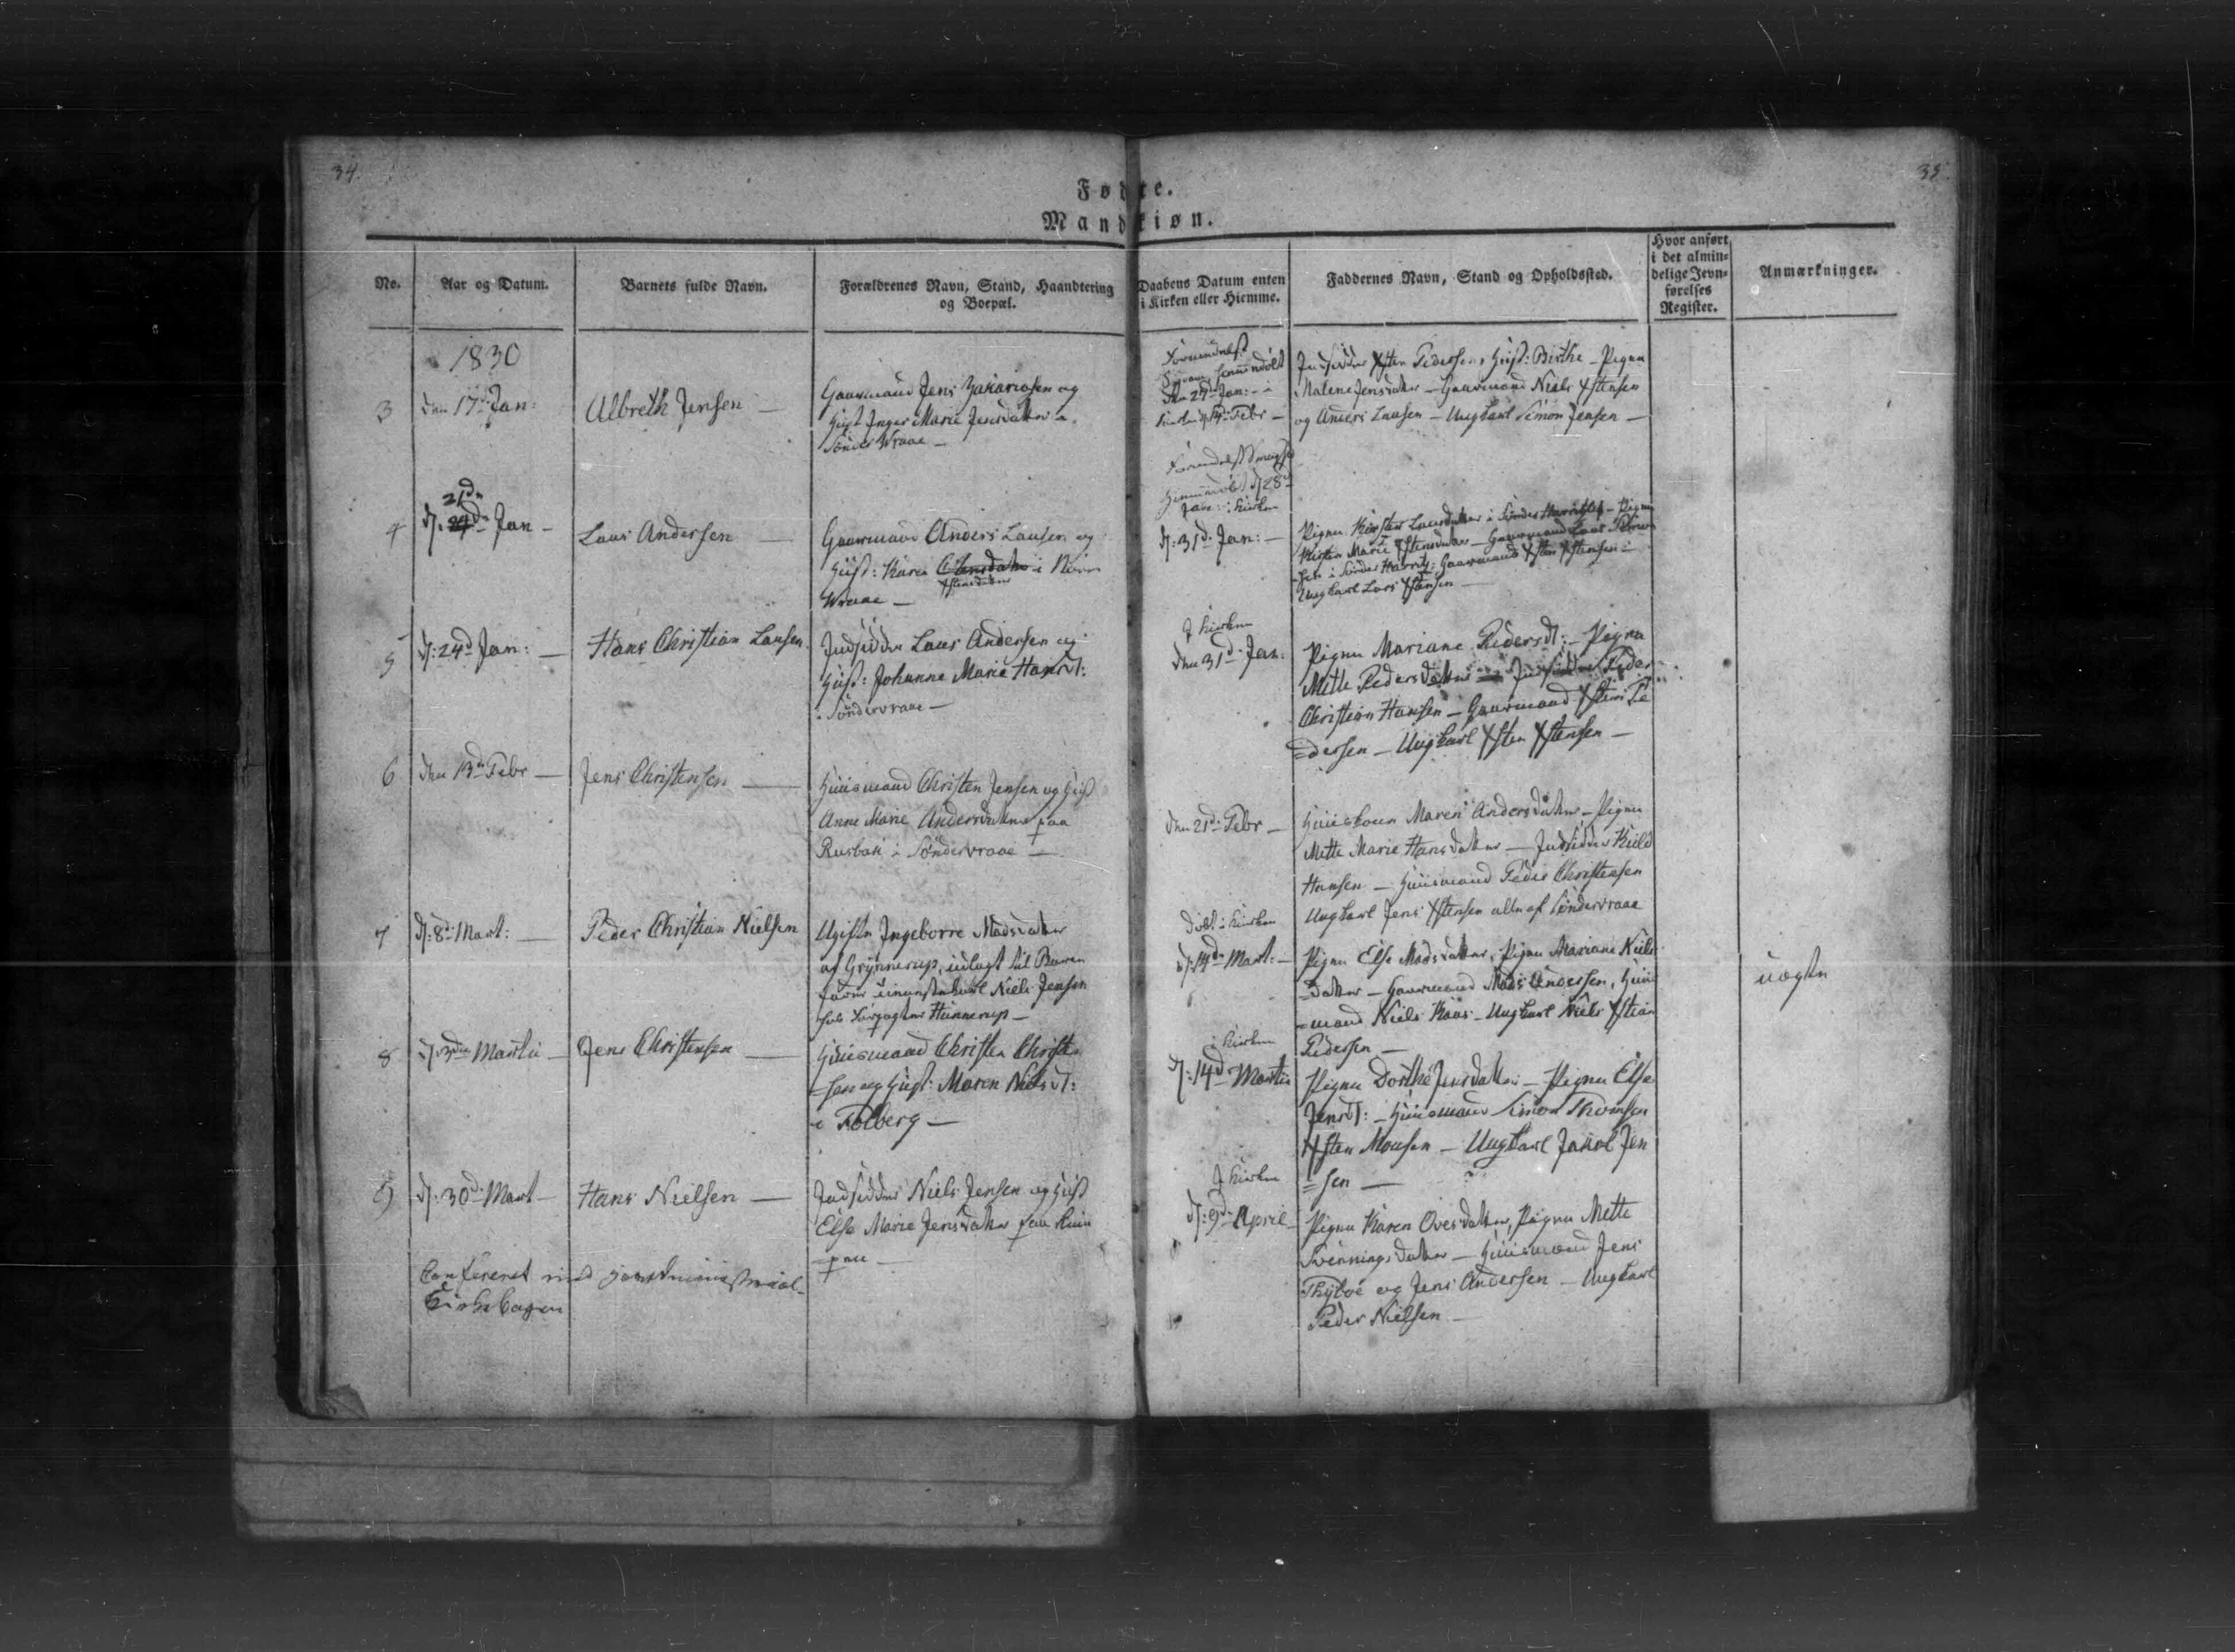 34.
35.
Fødte.
Mandkiøn.
No.
Aar og Datum.
Barnets fulde Navn.
Forældrenes Navn, Stand, Haandtering
og Boepæl.
Daabens Datum enten
i Kirken eller Hiemme.
Faddernes Navn, Stand og Opholdssted.
Hvor anført
i det almin-
delige Jevn-
førelses
Register.
Anmærkninger.
1830
3
den 17d Jan:
Albreth Jensen —
Gaarmand Jens Zakariasen og
Hust Inger Marie Jensdatter i
Sönder Wraae —
hiemmedöbt
den 27d Jan: - i
Kirken Febr —
Indsidder Xsten Pedersens Hust: Birthe - Pigen
Malene Jensdatter - Gaarmand Niels Xstensen
og Anders Lausen - Ungkarl Simon Jensen —
4
21de
d: Jan -
Laus Andersen —
Gaarmand Anders Lausen og
Hust: Karen i Nörre
Xstensdatter
Wraae —
hiemmedöbt d 28d
Jan: i Kirken
d: 31d Jan: —
Pigen Kirsten Lausdatter i Sönder Harritslef - Pigen
Kirsten Marie Xstensdatter - Gaarmand Laus
sen i Sönder Harrits: Gaarmand Xsten Xstensen -
Ungkarl Lars Xstensen —
5
d: 24d Jan: —
Hans Christian Lausen
Indsidder Laus Andersen og
Hust: Johanne Marie Hansd:
i Söndervraae —
I Kirken
den 31d Jan:
Pigen Mariane Pedersd: - Pigen
Mette Pedersdatter Indsidder Peder
Christian Hansen - Gaarmand Xsten Pe
=dersen - Ungkarl Xsten Xstensen —
6
den 13d Febr —
Jens Christensen —
Huusmand Christen Jensen og Hust
Anne Marie Andersdatter paa
Rusbak i Söndervraae —
den 21d Febr —
Huuskonen Maren Andersdatter - Pigen
Mette Marie Hansdatter - Indsidder Kield
Hansen - Huusmand Peder Christensen
Ungkarl Jens Xstensen alle af Söndervraae
7
d: 8d Mart: —
Peder Christian Nielsen
Ugifte Ingeborre Madsdatter
af Grynnerup, udlagt til Barne
fader Niels Jensen
hos Forpagter Hünnerup —
Döbt i Kirken
d: 14d Mart: —
Pigen Else Madsdatter, Pigen Mariane Niels
=datter - Gaarmand Mads Andersen, Huus
=mand Niels Kaas - Ungkarl Niels Xstian
Pedersen —
uægte
8
d: Martii —
Jens Christensen —
Huusmand Christen Christen
=sen og Hust: Maren Nielsd:
i Folberg —
i Kirken
d: 14d Martii
Pigen Dorthe Jensdatter - Pigen Else
Jensd: - Huusmand Simon Thomsen
Xsten Mousen - Ungkarl Jakob Jen
=sen —
9
d: 30d Mart —
Hans Nielsen —
Indsidder Niels Jensen og Hust
Else Marie Jensdatter paa
I Kirken
d: 9d April —
Pigen Karen Ovesdatter, Pigen Mette
Svenningsdatter - Huusmand Jens
Thyboe og Jens Andersen - Ungkarl
Peder Nielsen —
Confereret med
Kirkebogen